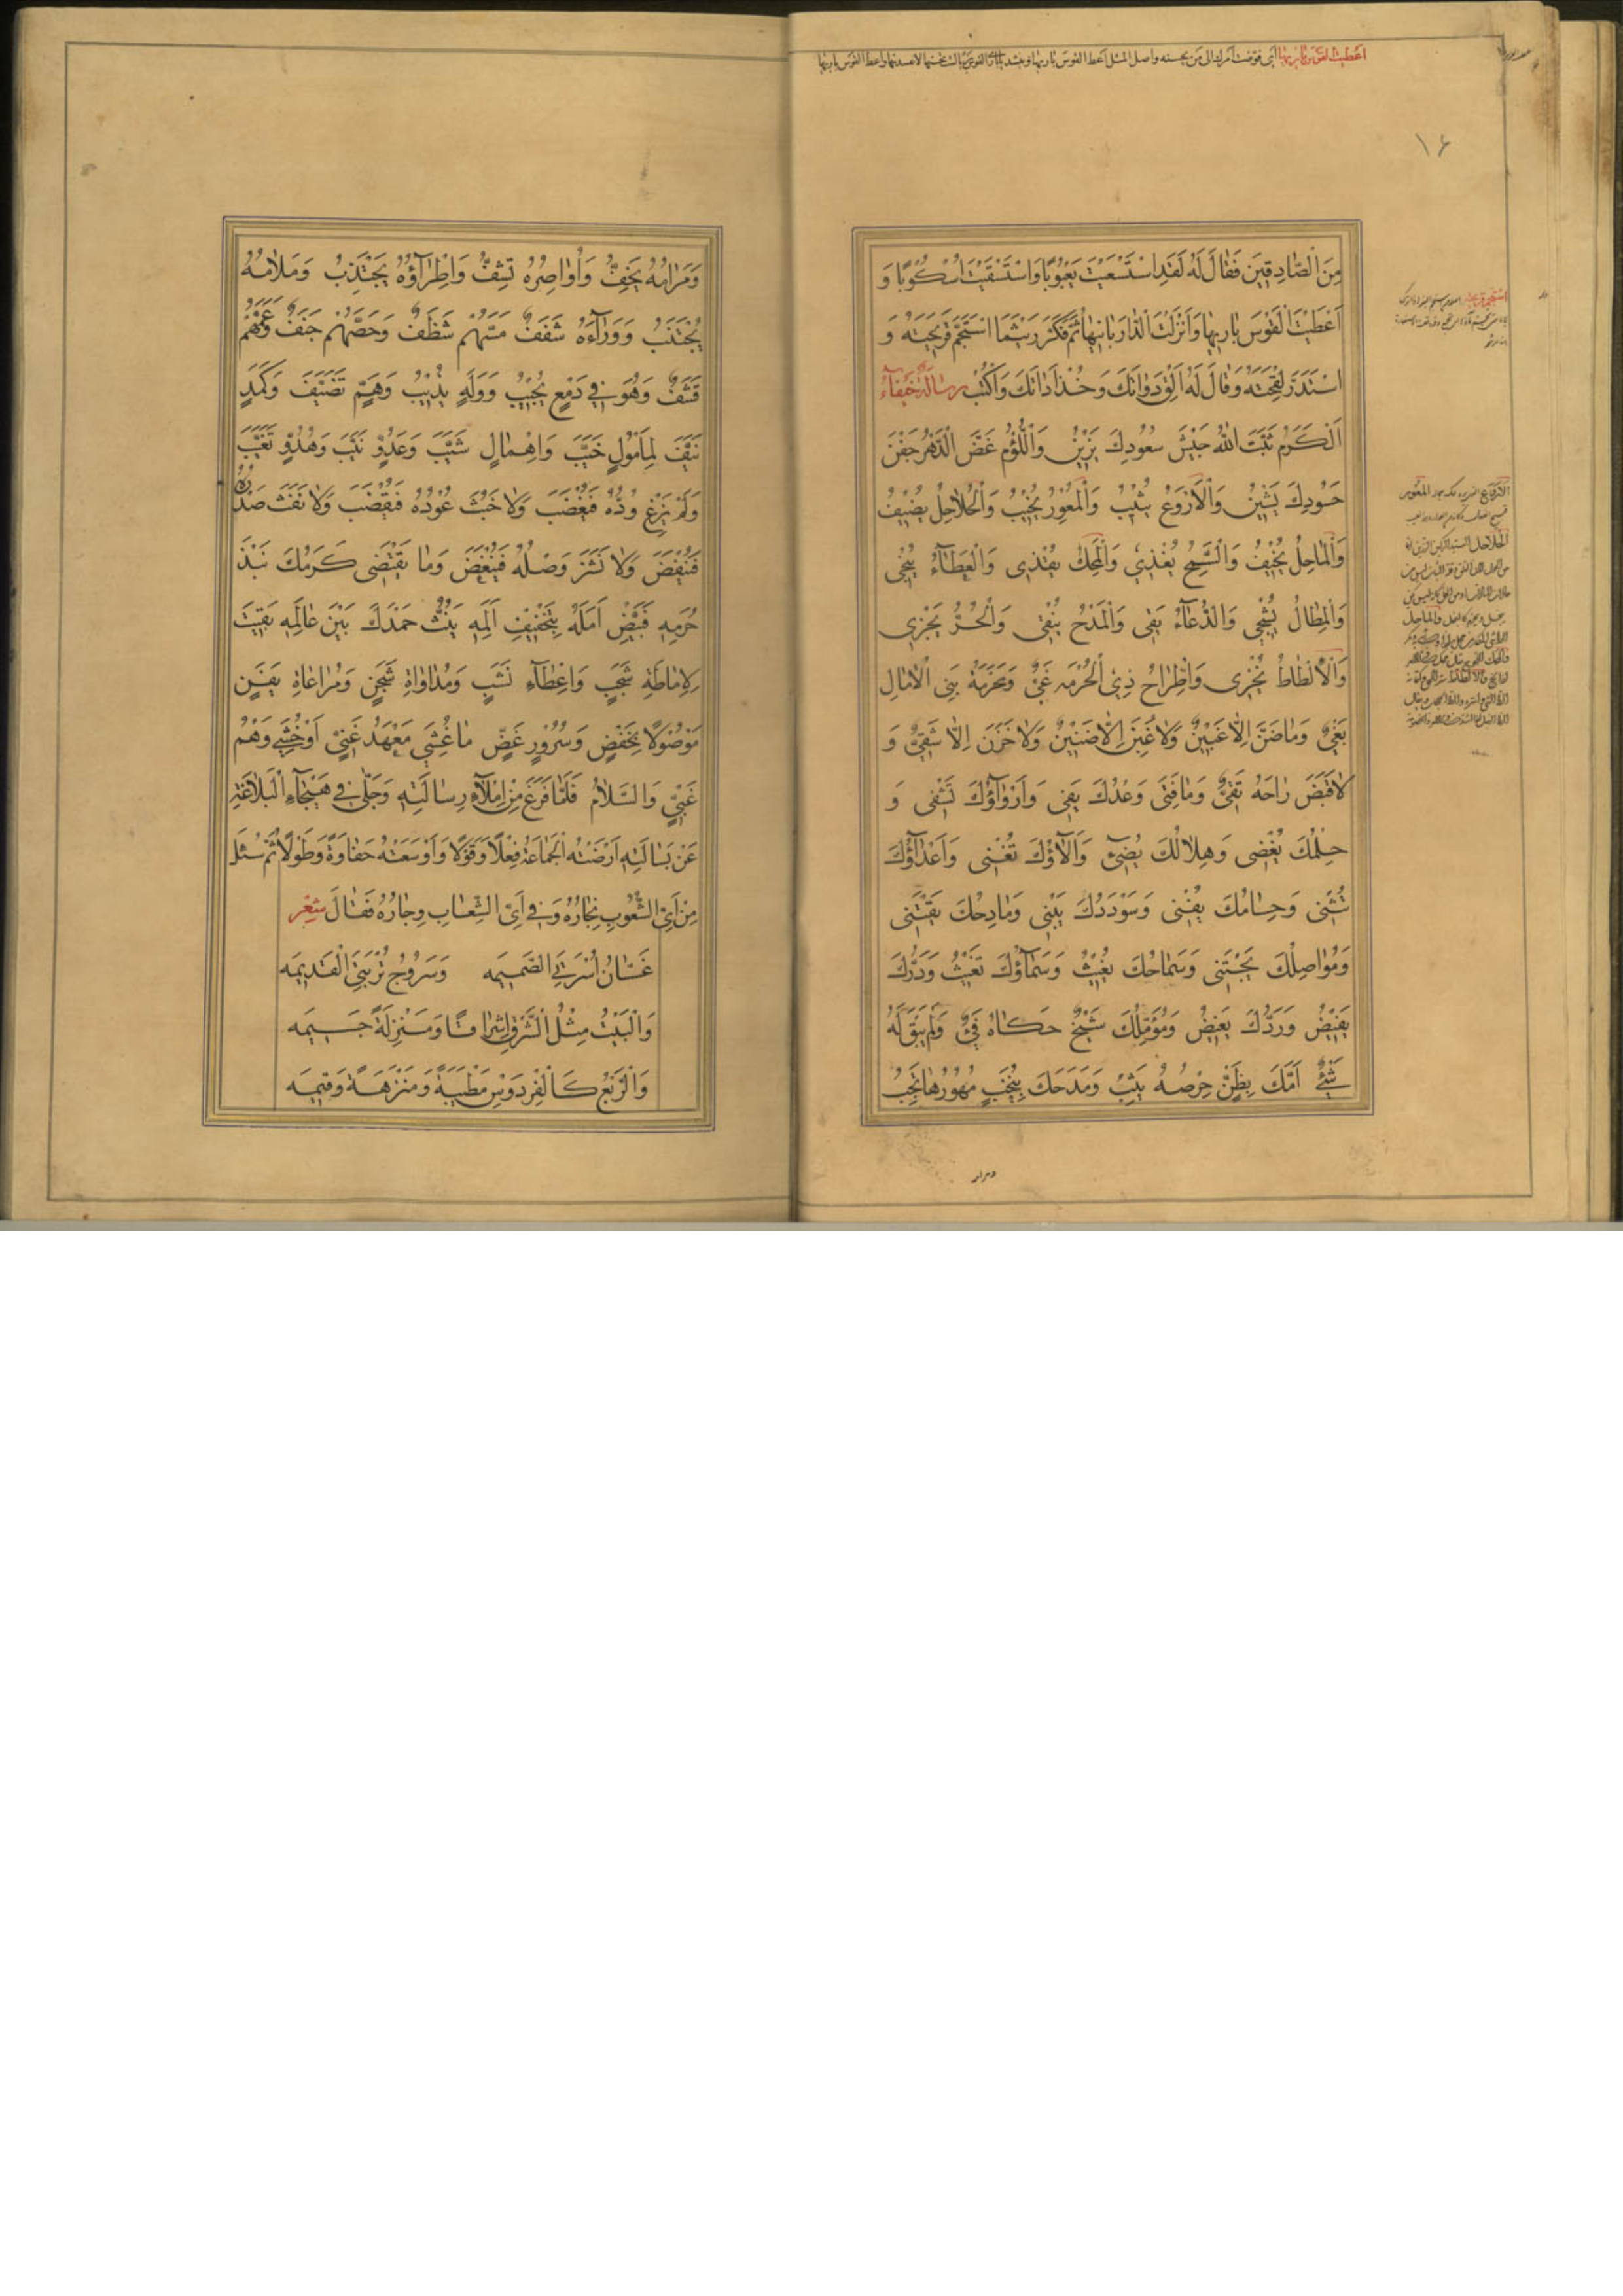 اعطیت القوس باریها ای فوضت امرك الی من یحسنه واصل المثل اعط القوس باریها
١٦
مِنَ الْصّادِقینَ فَقالَ لَهُ لَقَدِ اسْتَسْعَیْتَ یَعْبُوبًا وَاسْتَسْقَیْتَ اُسْکُوبًا وَ
اَعْطَیْتَ الْقَوْسَ بارِیَها وَاَنْزَلْتَ الْدّارَ بانِیَها ثُمَّ فَکَّرَ رَیْثَمَا اسْتَجَمَّ قَریحَتَهُ وَ
اسْتَدَرَّ لِقْحَتَهُ وَقالَ لَهُ اَلِقْ دَواتَكَ وَخُذْ اَداتَكَ وَاکْتُبْ رِسالَةٌ خَیْفآءُ
اَلْکَرَمُ ثَبَّتَ اللهُ جَیْشَ سُعُودِكَ یَزینُ وَالْلُّؤْمُ غَضَّ الْدَّهْرُ جَفْنَ
حَسُودِكَ یَشینُ وَالْاَرْوَعُ یُثیبُ وَالْمُعْوِرُ یُخیبُ وَالْحُلاحِلُ یُضیفُ
وَالْماحِلُ یُخیفُ وَالْسَّمِحُ یُغْذی وَالْمَحِكُ یُقْذی وَالْعَطآءُ یُنْجی
وَالْمِطالُ یُشْجی وَالدُّعآءُ یَقی وَالْمَدْحُ یُنْقی وَالْحُرُّ یَجْزی
وَالْاِلْطاطُ یُخْزی وَاطِّراحُ ذِی الْحُرْمَهِ غَیٌّ وَمَحْرَمَةُ بَنِی الْامالِ
بَغْیٌ وَما ضَنَّ اِلّا غَبینٌ وَلا غُبِنَ اِلّا ضَنینٌ وَلا خَزَنَ اِلّا شَقِیٌّ وَ
لا قَبَضَ راحَهُ تَقِیٌّ وَما فَتِیَ وَعْدُكَ یَفی وَارآؤُكَ تَشْفی وَ
حِلْمُكَ یُغْضی وَهِلالُكَ یُضیءُ وَآلآؤُكَ تُغْنی وَاَعْدآؤُكَ
تُثْنی وَحِسامُكَ یُفْنی وَسُوْدَدُكَ یَبْنی وَمادِحُكَ یَقْتَنی
وَمُواصِلُكَ یَجْتَنی وَسَماحُكَ یُغیثُ وَسَمآؤُكَ تَغیثُ وَدَرُّكَ
یَفیضُ وَرَدُّكَ یَغیضُ وَمُؤَمِّلُكَ شَیْخٌ حَکاهُ فَیْءٌ وَلَمْ یَبْقَ لَهُ
شَیْءٌ اَمَّكَ بِظَنٍّ حِرْصُهُ یَثِبُ وَمَدَحَكَ بِنُخَبٍ مُهُورُها تَجِبُ
وَمَرامُهُ یَخِفُّ وَاَواصِرُهُ تَشِفُّ وَاِطْرآؤُهُ یُجْتَذَبُ وَمَلامُهُ
یُجْتَنَبُ وَوَرآءَهُ ضَفَفٌ مَسَّهُمْ شَظَفٌ وَحَصَّهُمْ جَنَفٌ وَعَمَّهُمْ
قَشَفٌ وَهُوَ فی دَمْعٍ یُجیبُ وَوَلَهٍ یُذیبُ وَهَمٍّ تَضَیَّفَ وَکَمَدٍ
نَیَّفَ لِمَأْمُولٍ خَیَّبَ وَاِهْمالٍ شَیَّبَ وَعَدُوٍّ نَیَّبَ وَهُدُوٍّ تَغَیَّبَ
وَلَمْ یَزِغْ وُدُّهُ فَیُغْضَبَ وَلا خَبُثَ عُودُهُ فَیُقْضَبَ وَلا نَفَثَ صَدْرُهُ
فَیُنْفَضَ وَلا نَشَزَ وَصْلُهُ فَیُبْغَضَ وَما یَقْتَضی کَرَمُكَ نَبْذَ
حُرَمِهِ فَبَیِّضْ اَمَلَهُ بِتَخْفیفِ اَلَمِهِ یَنُثُّ حَمْدَكَ بَیْنَ عالَمِهِ بَقیتَ
لِاِماطَةِ شَجَبٍ وَاِعْطآءِ نَشَبٍ وَمُداواةِ شَجَنٍ وَمُراعاةِ یَفَنٍ
مَوْصُولًا بِخَفْضٍ وَسُرُورٍ غَضٍّ ما غُشِیَ مَعْهَدُ غَنِیٍّ اَوْ خُشِیَ وَهْمُ
غَبِیٍّ وَالسَّلامُ فَلَمّا فَرَغَ مِنْ اِمْلآءِ رِسالَتِهِ وَجَلّی فی هَیْجآءِ الْبَلاغَةِ
عَنْ بَسالَتِهِ اَرْضَتْهُ الْجَماعَةُ فِعْلًا وَقَوْلًا وَاَوْسَعَتْهُ حَفاوَةً وَطَوْلًا ثُمَّ سُئِلَ
مِنْ اَیِّ الشُّعُوبِ نِجارُهُ وَفی اَیِّ الشِّعابِ وِجارُهُ فَقالَ شِعْر
غَسّانُ اُسْرَتِیَ الصَّمیمَه وَسَرُوجُ تُرْبَتِیَ الْقَدیمَه
وَالْبَیْتُ مِثْلُ الْشَّرْقِ اِشْراقًا وَمَنْزِلَةً جَسیمَه
وَالْرَّبْعُ کَالْفِرْدَوْسِ مَطْیَبَةً وَمَنْزَهَةً وَقیمَه